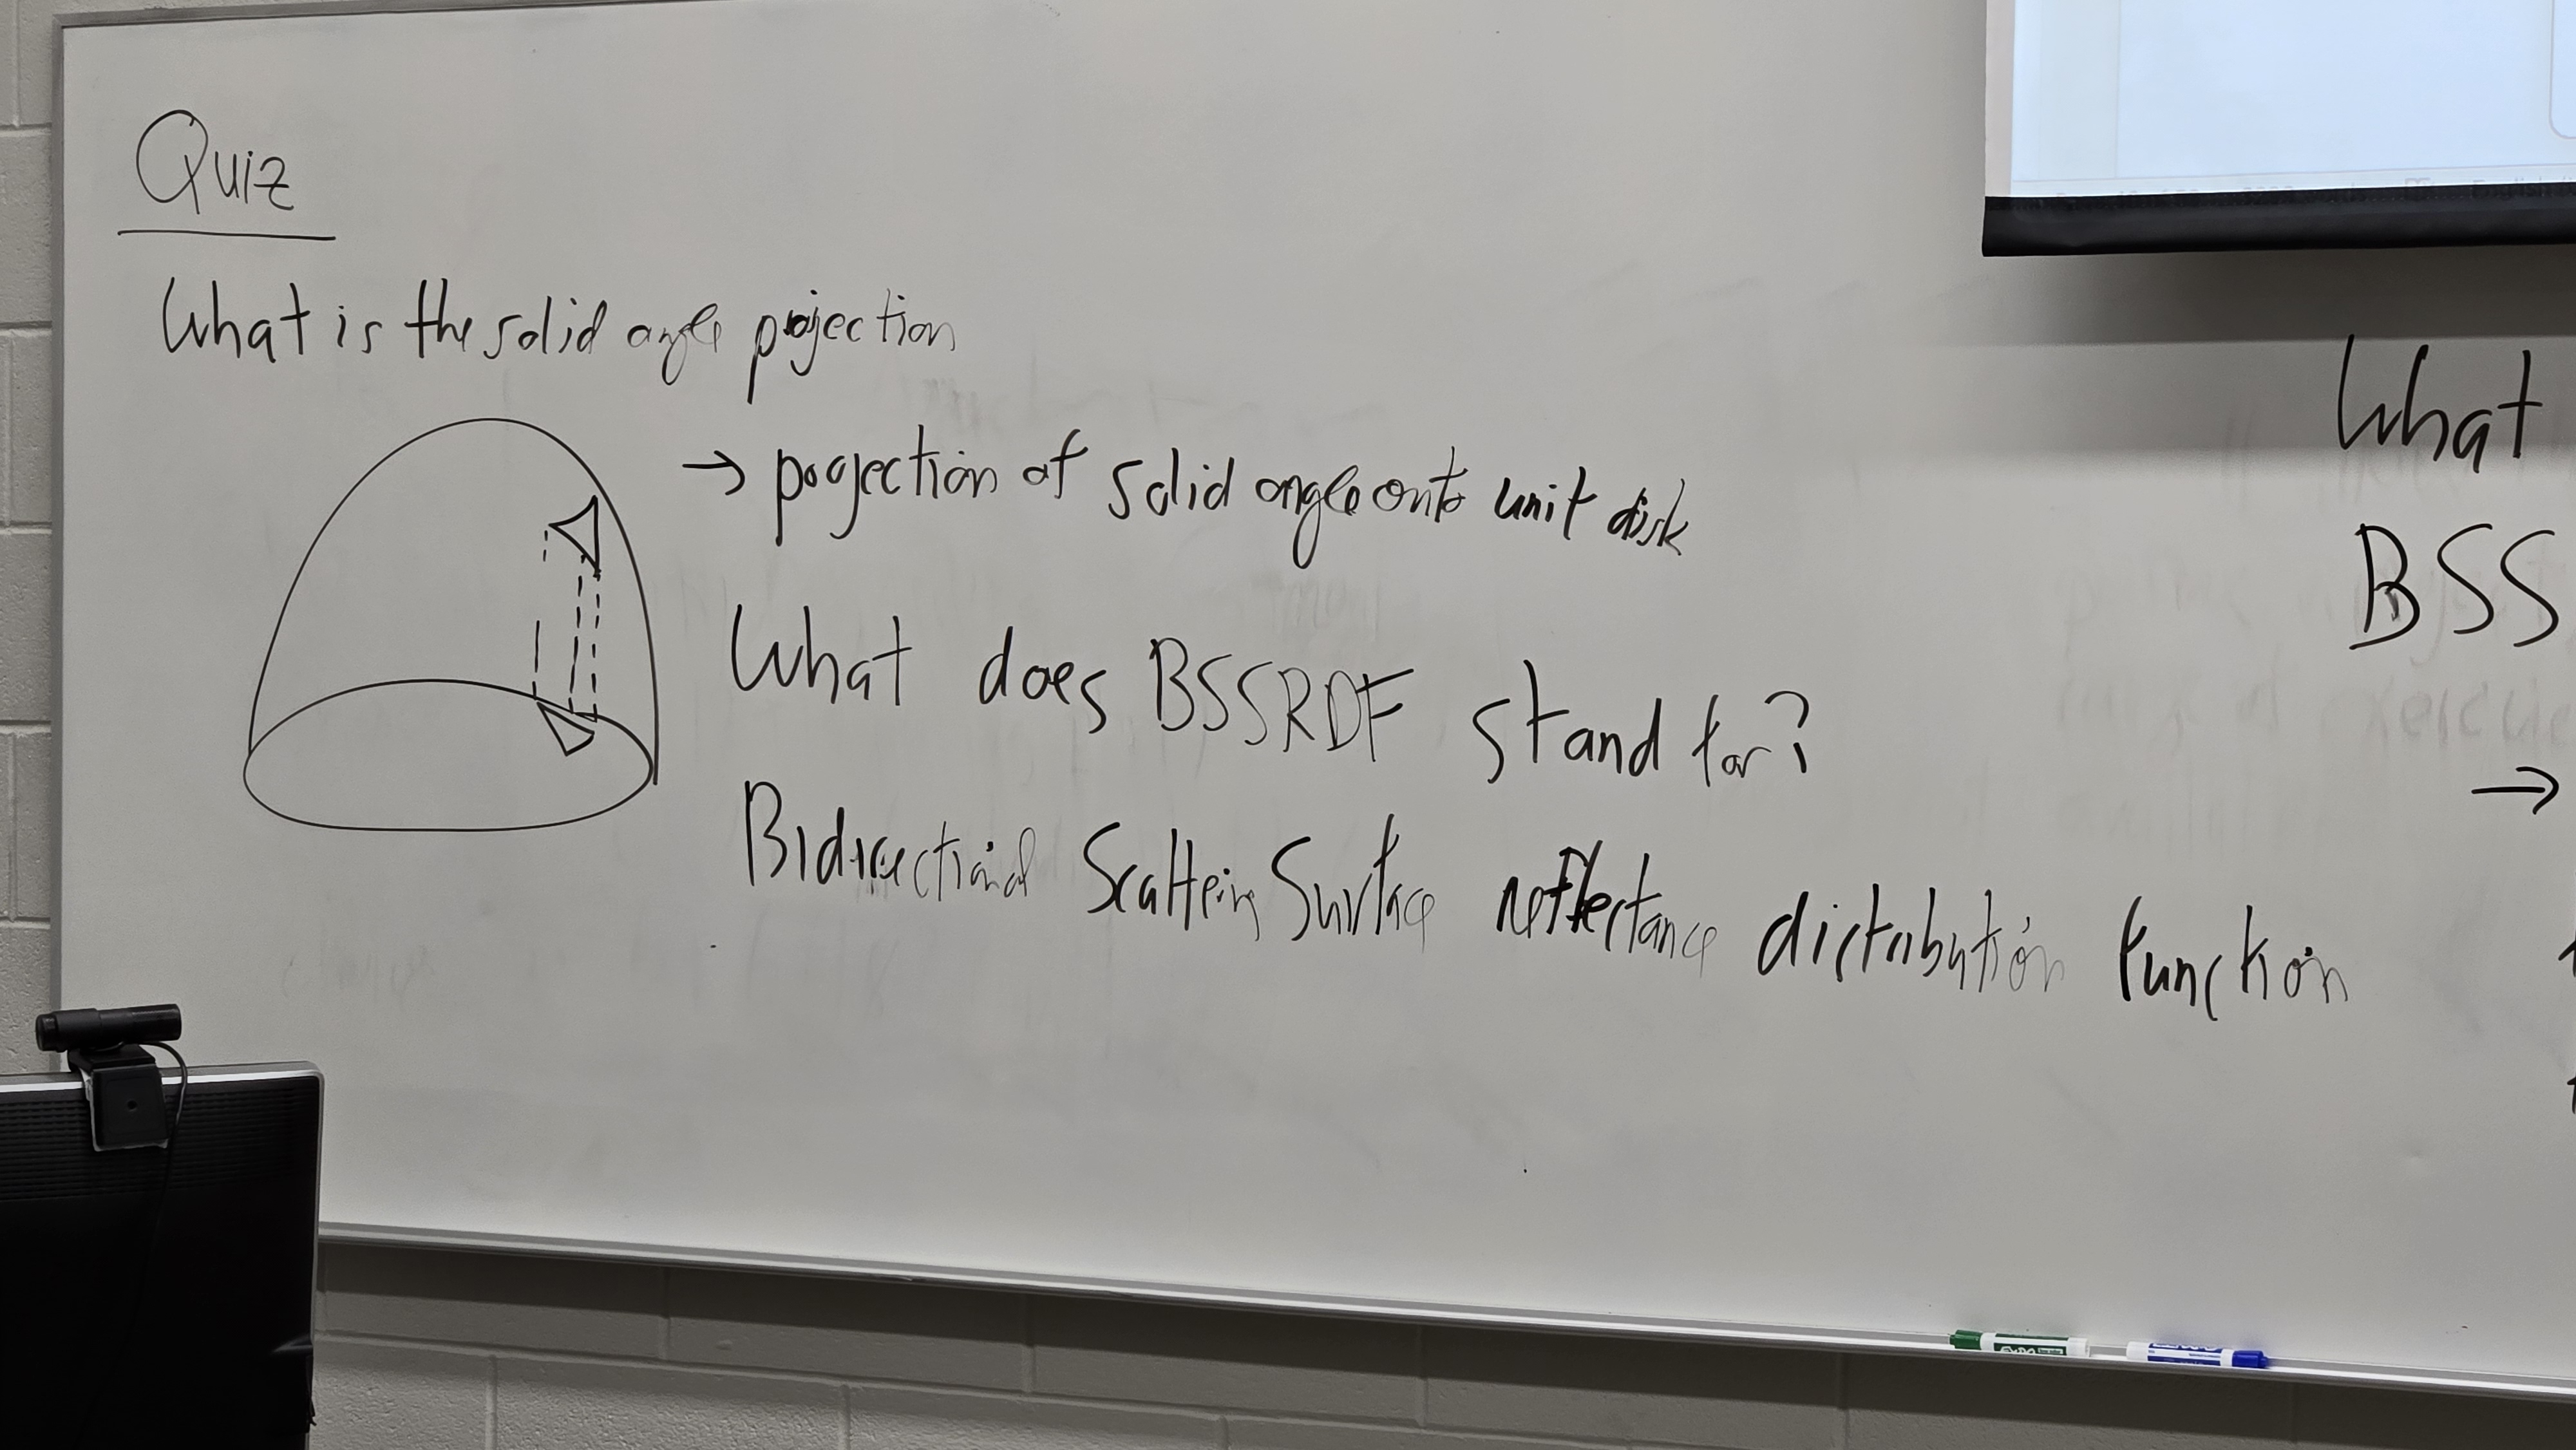 Quiz
What is the solid angle projection
→ projection of solid angle onto unit disk
What does BSSRDF stand for?
Bidirectional Scattering Surface reflectance distribution function
What
BSS
→